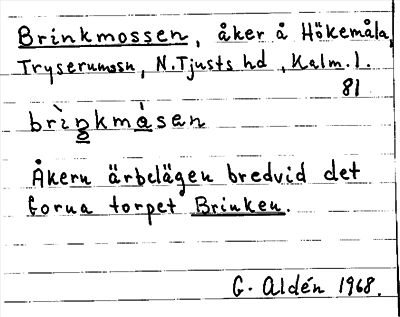 Brinkmossen, åker å Hökemåla,
Tryserumssn, N. Tjusts hd, Kalm. l.
81
brìnkmásen
Åkern är belägen bredvid det
forna torpet Brinken.
G. Aldén 1968.